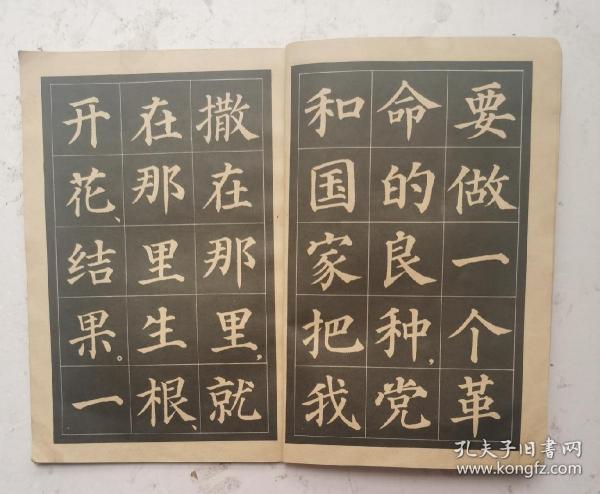 要做一个革
命的良种，党
和国家把我
撒在那里，就
在那里生根、
开花、结果。一
孔夫子旧书网
www.kongfz.com